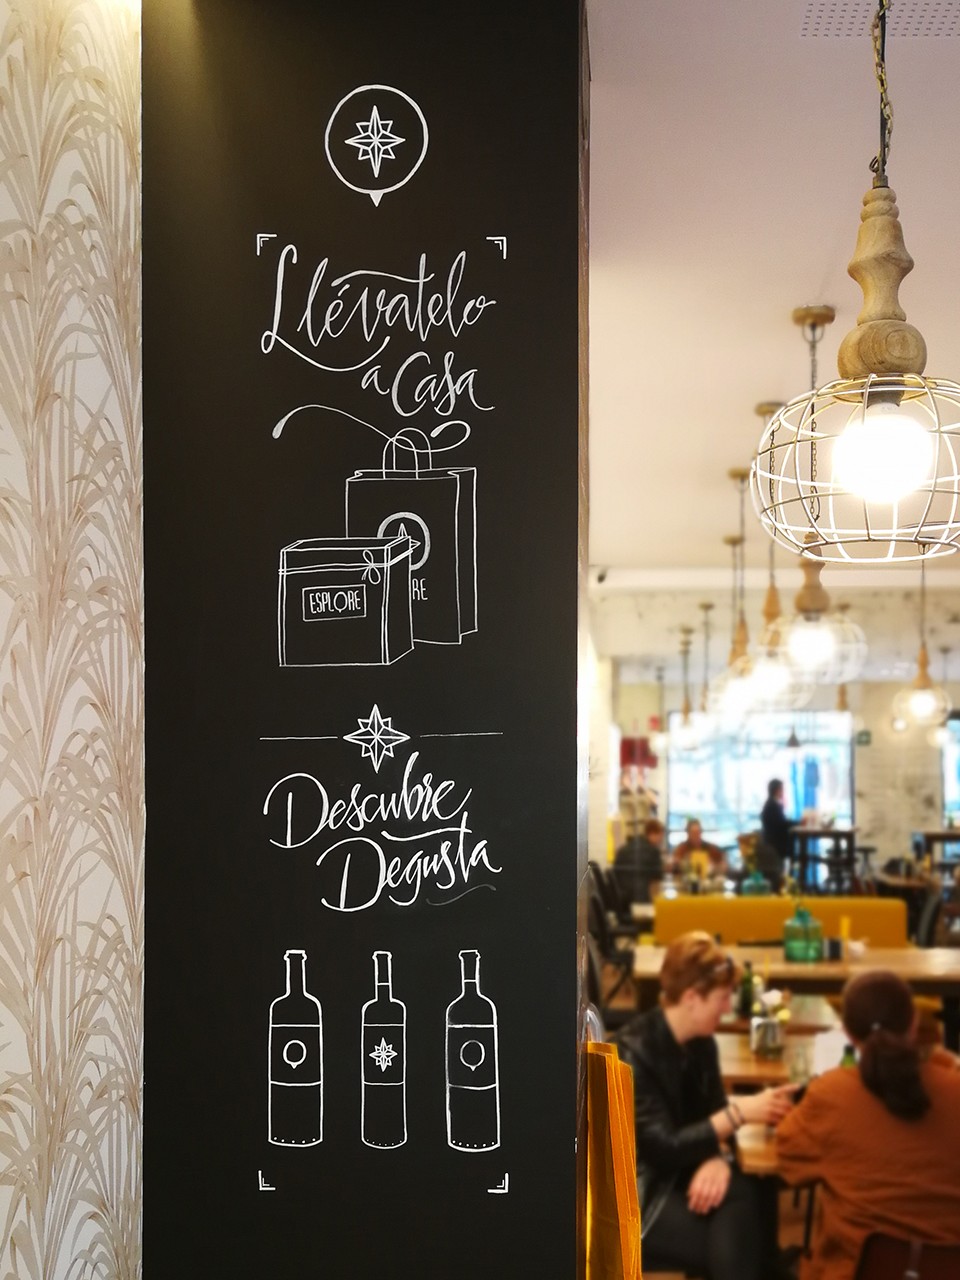 Llévatelo
a Casa
ESPLORE
RE
Descubre
Degusta